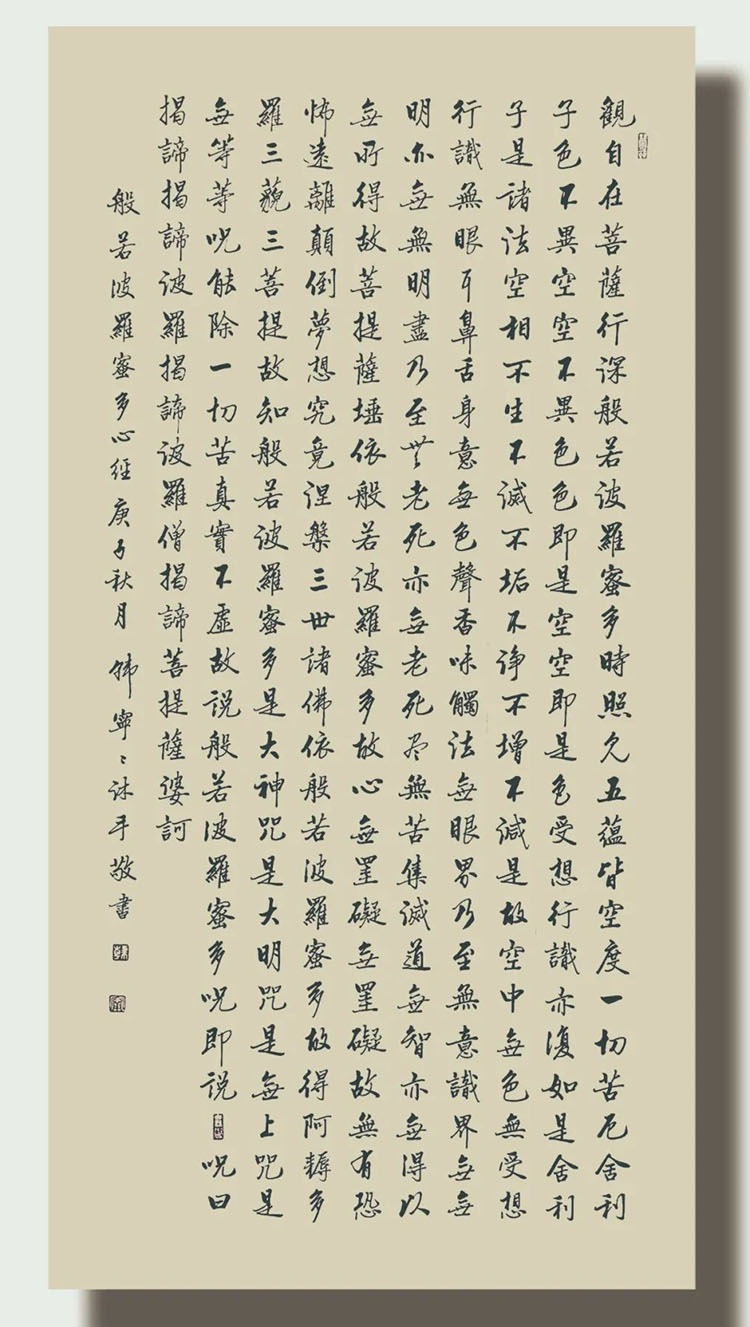 觀自在菩薩行深般若波羅蜜多時照見五蘊皆空度一切苦厄舍利
子色不異空空不異色色即是空空即是色受想行識亦復如是舍利
子是諸法空相不生不滅不垢不淨不增不減是故空中無色無受想
行識無眼耳鼻舌身意無色聲香味觸法無眼界乃至無意識界無無
明亦無無明盡乃至無老死亦無老死盡無苦集滅道無智亦無得以
無所得故菩提薩埵依般若波羅蜜多故心無罣礙無罣礙故無有恐
怖遠離顛倒夢想究竟涅槃三世諸佛依般若波羅蜜多故得阿耨多
羅三藐三菩提故知般若波羅蜜多是大神咒是大明咒是無上咒是
無等等呪能除一切苦真實不虛故説般若波羅蜜多呪即説呪曰
揭諦揭諦波羅揭諦波羅僧揭諦菩提薩婆訶
般若波羅蜜多心經庚子秋月韩寧〻沐手敬書